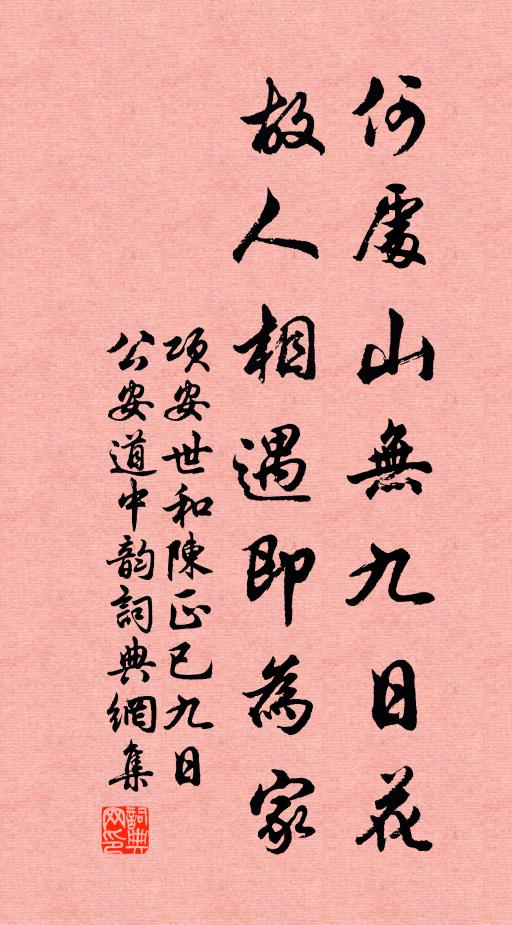 何處山無九日花
故人相遇即為家
項安世和陳正已九日
公安道中韵詞典網集
詞典
网印